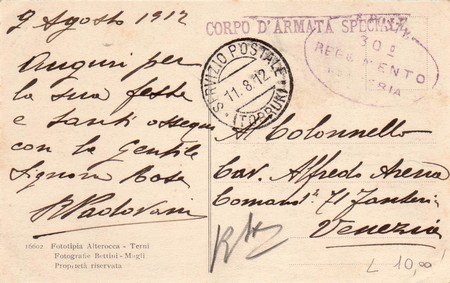 9 Agosto 1912
Auguri per
la sua festa
e tanti ossequi
con la Gentile
Signora Rosa
R Padovani
16602 Fototipia Alterocca - Terni
Fotografie Bettini - Megli
Proprietà riservata
CORPO D'ARMATA SPECIALE
SERVIZIO POSTALE
11.8.12
(TOBRUK)
30º
REGGIMENTO
Al Colonnello
Cav. Alfredo Arena
Comandte 71 Fanteria
Venezia
L 10,00